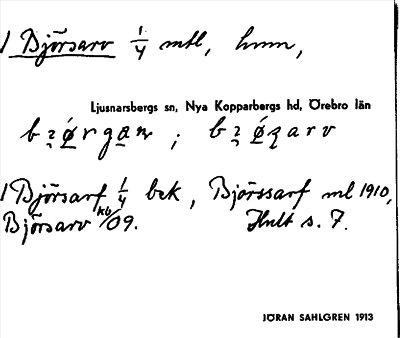 1 Björsarv 1/4 mtl, hmn,
Ljusnarsbergs sn, Nya Kopparbergs hd, Örebro län
1 Björsarf 1/4 bek, Björssarf ml 1910,
Björsarv kb/09. Hult s. 7.
JÖRAN SAHLGREN 1913